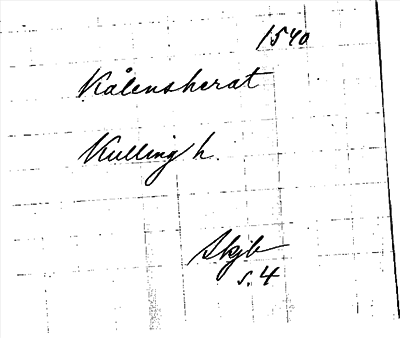 1540
Kålensherat
Kulling h.
Skjb
s. 4